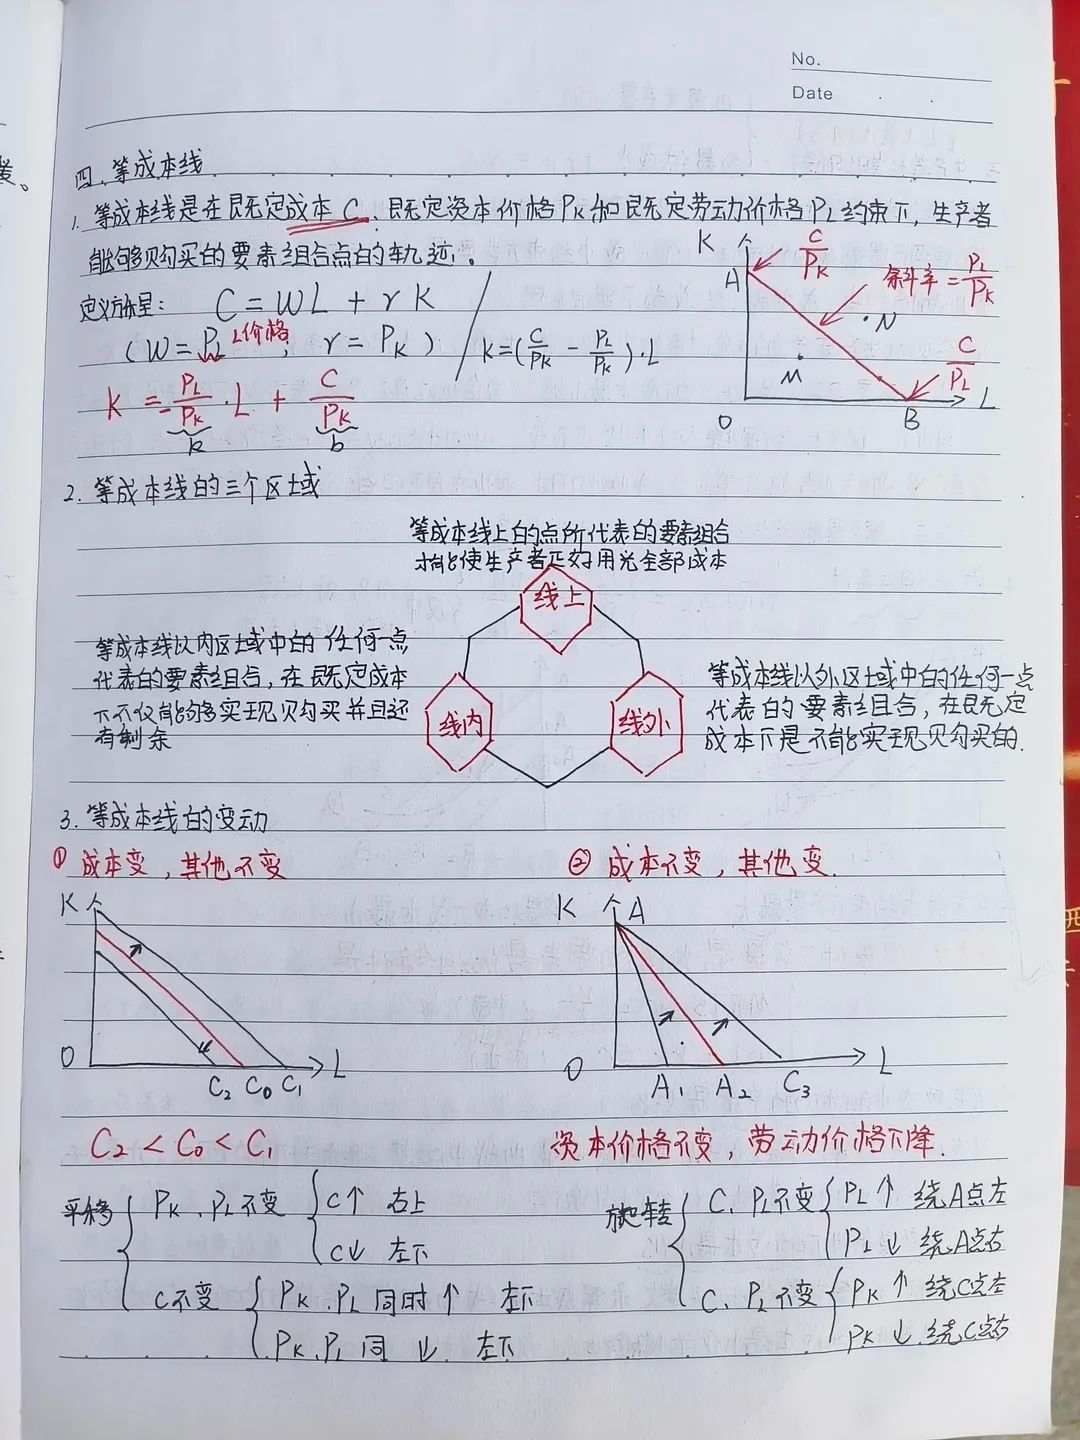 No.
Date
四、等成本线
1. 等成本线是在既定成本C、既定资本价格PK和既定劳动价格PL约束下，生产者
能够购买的要素组合点的轨迹。
定义方程：C=WL+rK
(W=PL L价格; r=PK) / K=(C/PK - PL/PK)·L
K=-PL/PK·L+C/PK
k b
K A C/PK
斜率=PL/PK
·N
M
C/PL
O B L
2. 等成本线的三个区域
等成本线上的点所代表的要素组合
才能使生产者正好用光全部成本
线上
等成本线以内区域中的任何一点
代表的要素组合，在既定成本
下不仅能够实现购买并且还
有剩余
线内
线外
等成本线以外区域中的任何一点
代表的要素组合，在既定
成本下是不能实现购买的.
3. 等成本线的变动
① 成本变，其他不变
② 成本不变，其他变.
K
O C2 C0 C1 L
K A
O A1 A2 C3 L
C2<C0<C1
资本价格不变，劳动价格下降.
平移 PK、PL不变 C↑ 右上
C↓ 左下
C不变 PK、PL同时↑ 左下
PK、PL同↓ 左下
旋转 C、PL不变 PL↑ 绕A点左
PL↓ 绕A点右
C、PL不变 PK↑ 绕C点左
PK↓ 绕C点右